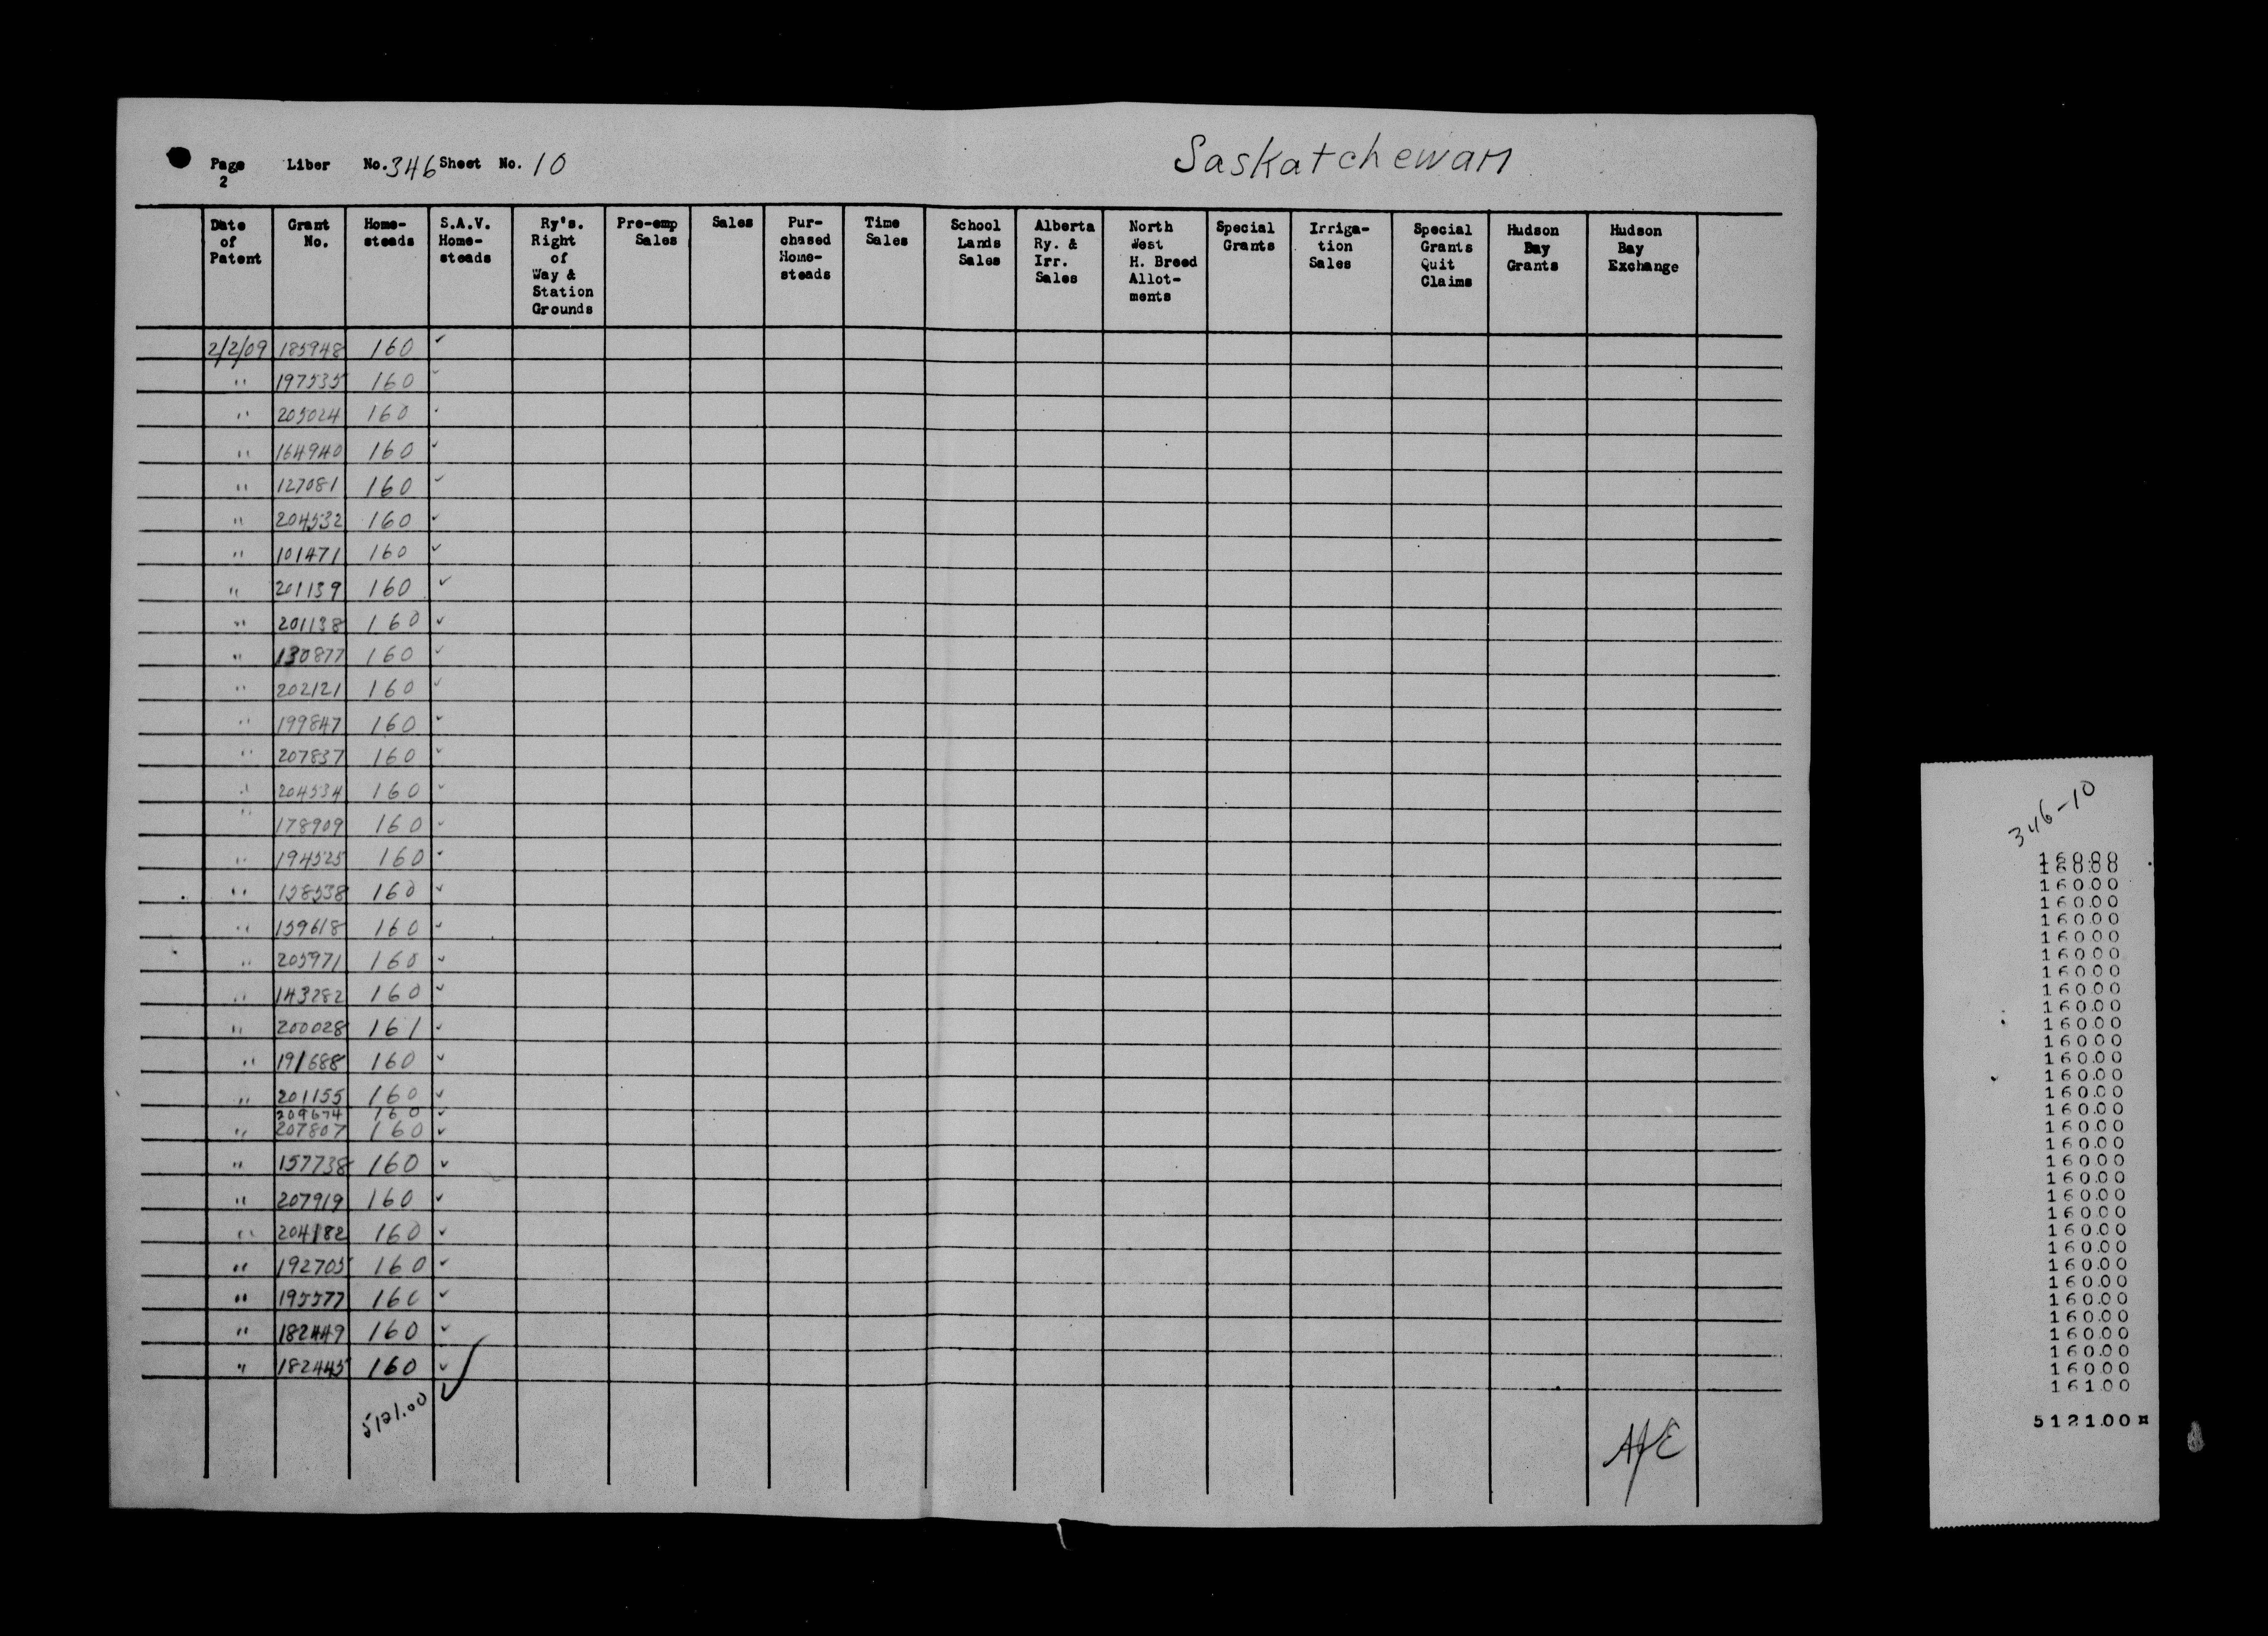 Page 2 Liber No. 346 Sheet No. 10
Saskatchewan
Date of Patent | Grant No. | Home-steads | S.A.V. Home-steads | Ry's. Right of Way & Station Grounds | Pre-emp Sales | Sales | Pur-chased Home-steads | Time Sales | School Lands Sales | Alberta Ry. & Irr. Sales | North West H. Breed Allot-ments | Special Grants | Irriga-tion Sales | Special Grants Quit Claims | Hudson Bay Grants | Hudson Bay Exchange
2/2/09 185948 160 ✓
" 197535 160 ✓
" 205024 160
" 164940 160 ✓
" 127081 160 ✓
" 204532 160 ✓
" 101471 160 ✓
" 201139 160 ✓
" 201138 160 ✓
" 130877 160 ✓
" 202121 160 ✓
" 199847 160 ✓
" 207837 160 ✓
" 204534 160 ✓
" 178909 160 ✓
" 194525 160 ✓
" 158538 160 ✓
" 159618 160 ✓
" 205971 160 ✓
" 143282 160 ✓
" 200028 161 ✓
" 191688 160 ✓
" 201155 160 ✓
209674 160 ✓
" 207807 160 ✓
" 157738 160 ✓
" 207919 160 ✓
" 204182 160 ✓
" 192705 160 ✓
" 195577 160 ✓
" 182449 160 ✓
" 182445 160 ✓
5121.00 ✓
346-10
160.00
160.00
160.00
160.00
160.00
160.00
160.00
160.00
160.00
160.00
160.00
160.00
160.00
160.00
160.00
160.00
160.00
160.00
160.00
160.00
160.00
160.00
160.00
160.00
160.00
160.00
160.00
160.00
160.00
160.00
160.00
161.00
5121.00 ¤